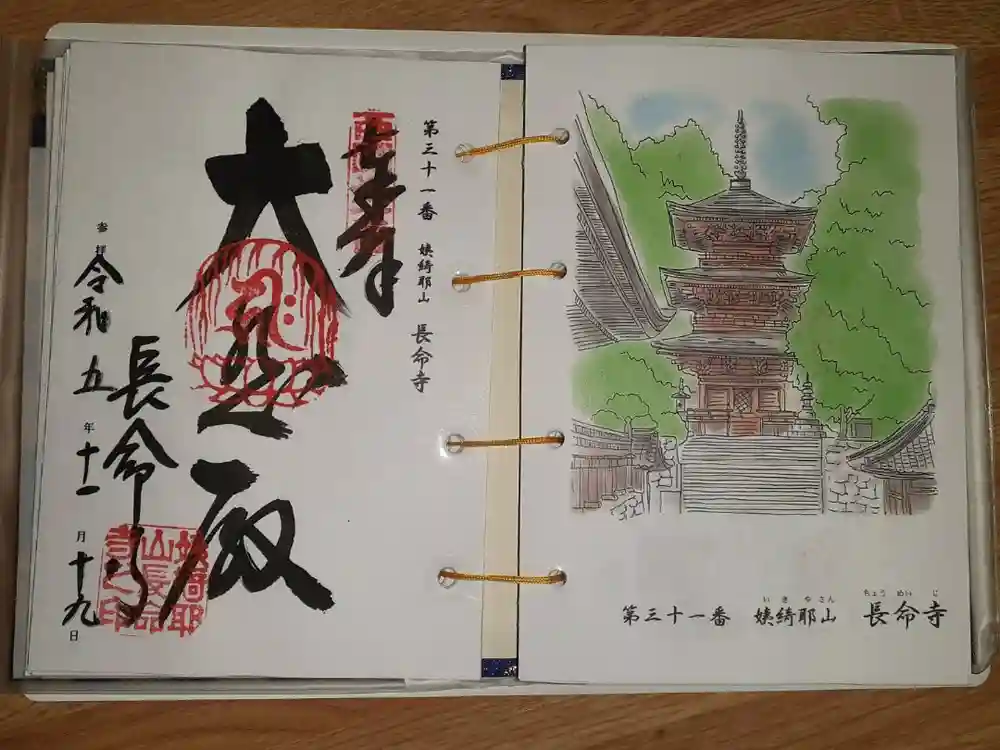 第三十一番 姨綺耶山 長命寺
奉拝
大悲殿
長命寺
姨綺耶
山長命
寺之印
参拝 令和五年十一月十九日
いきやさん ちょうめいじ
第三十一番 姨綺耶山 長命寺